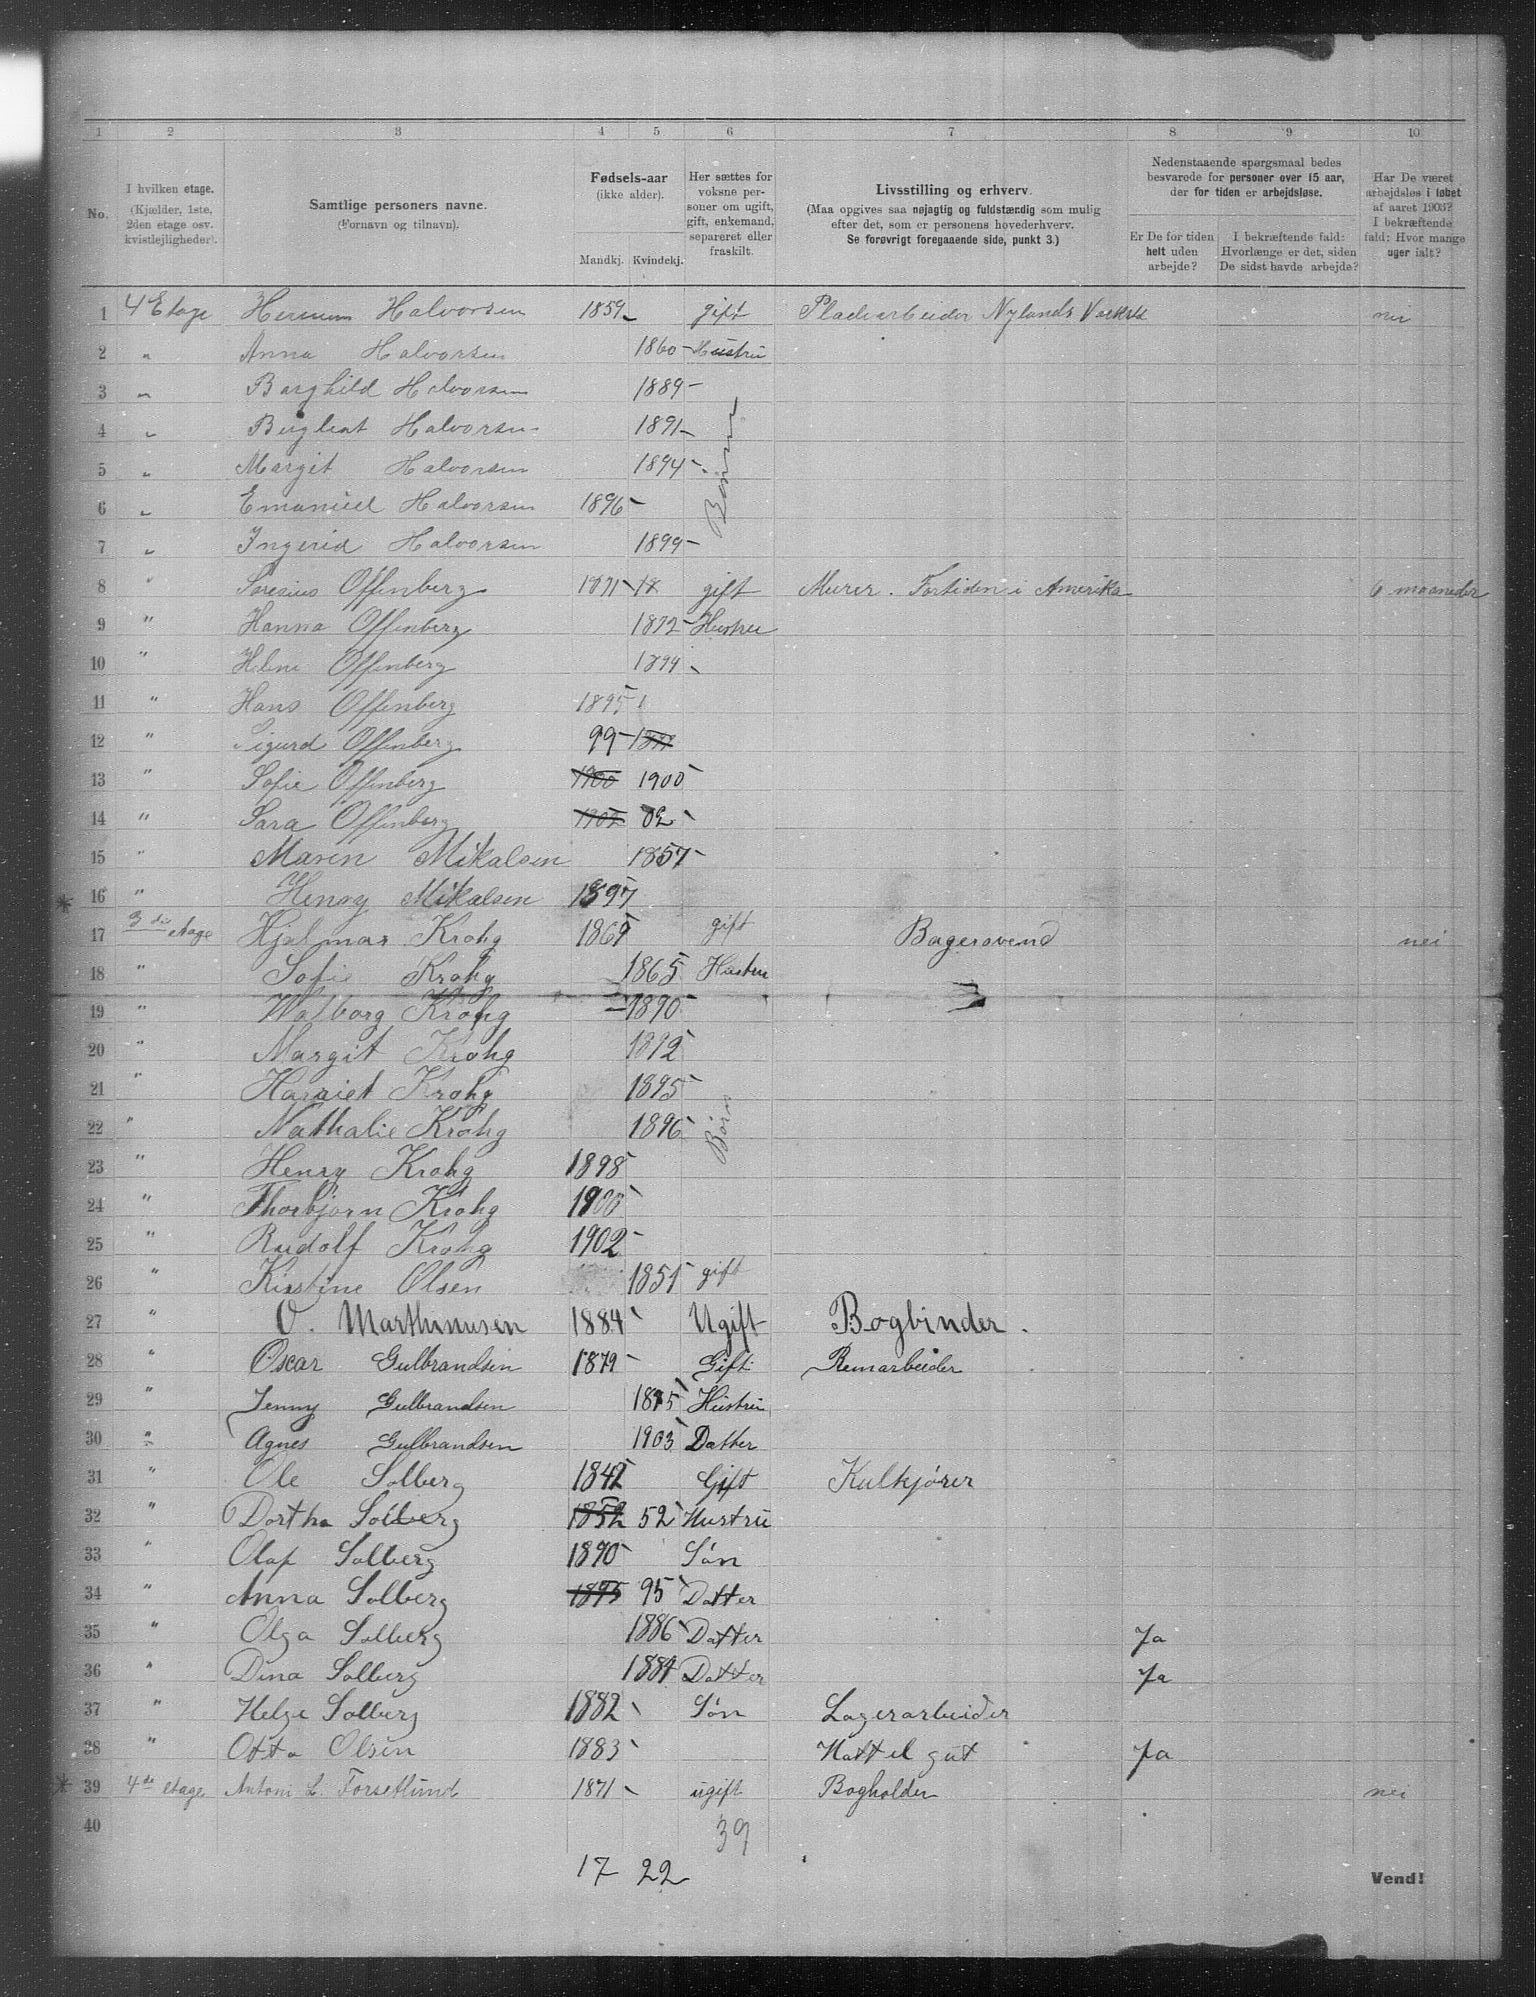 1 2 3 4 5 6 7 8 9 10
No.
I hvilken etage.
(Kjælder, 1ste,
2den etage osv.
kvistlejligheder).
Samtlige personers navne.
(Fornavn og tilnavn).
Fødsels-aar
(ikke alder).
Mandkj. Kvindekj.
Her sættes for
voksne per-
soner om ugift,
gift, enkemand,
separeret eller
fraskilt.
Livsstilling og erhverv.
(Maa opgives saa nøjagtig og fuldstændig som mulig
efter det, som er personens hovederhverv.
Se forøvrigt foregaaende side, punkt 3.)
Nedenstaaende spørgsmaal bedes
besvarede for personer over 15 aar,
der for tiden er arbejdsløse.
Er De for tiden
helt uden
arbejde?
I bekræftende fald:
Hvorlænge er det, siden
De sidst havde arbejde?
Har De været
arbejdsløs i løbet
af aaret 1903?
I bekræftende
fald: Hvor mange
uger ialt?
1 4 Etage Herman Halvorsen 1859 gift Pladearbeider Nylands nei
2 " Anna Halvorsen 1860 Hustru
3 " Borghild Halvorsen 1889
4 " Halvorsen 1891
5 " Margit Halvorsen 1894
Børn
6 " Emanuel Halvorsen 1896
7 " Ingerid Halvorsen 1899
8 " Offenberg 1871 gift Murer. Fortiden i Amerika 6 maaneder
9 " Hanna Offenberg 1872 Hustru
10 " Offenberg 1894
11 " Hans Offenberg 1895
12 " Sigurd Offenberg 99
13 " Sofie Offenberg 1900 1900
14 " Sara Offenberg 1902 02
15 " Maren Mikalsen 1857
16 " Henry Mikalsen 1897
17 3die etage Hjalmar Krohg 1869 gift Bagersvend nei
18 " Sofie Krohg 1865 Hustru
19 " Walborg Krohg 1890
20 " Margit Krohg 1892
21 " Harriet Krohg 1895
22 " Nathalie Krohg 1896
Børn
23 " Henry Krohg 1898
24 " Thorbjørn Krohg 1900
25 " Rudolf Krohg 1902
26 " Kirstine Olsen 1851 gift
27 " O. Marthinusen 1884 Ugift Bogbinder.
28 " Oscar Gulbrandsen 1879 Gift Remarbeider
29 " Jenny Gulbrandsen 1875 Hustru
30 " Agnes Gulbrandsen 1903 Datter
31 " Ole Solberg 1842 Gift Kulkjører
32 " Dortha Solberg 1852 52 Hustru
33 " Olaf Solberg 1890 Søn
34 " Anna Solberg 1895 95 Datter
35 " Olga Solberg 1886 Datter Ja
36 " Dina Solberg 1884 Datter Ja
37 " Helge Solberg 1882 Søn Lagerarbeider
38 " Otto Olsen 1883 Hottel gut Ja
39 4de etage Antoni L. Forsetlund 1871 ugift Bogholder nei
40 39
17 22
Vend!